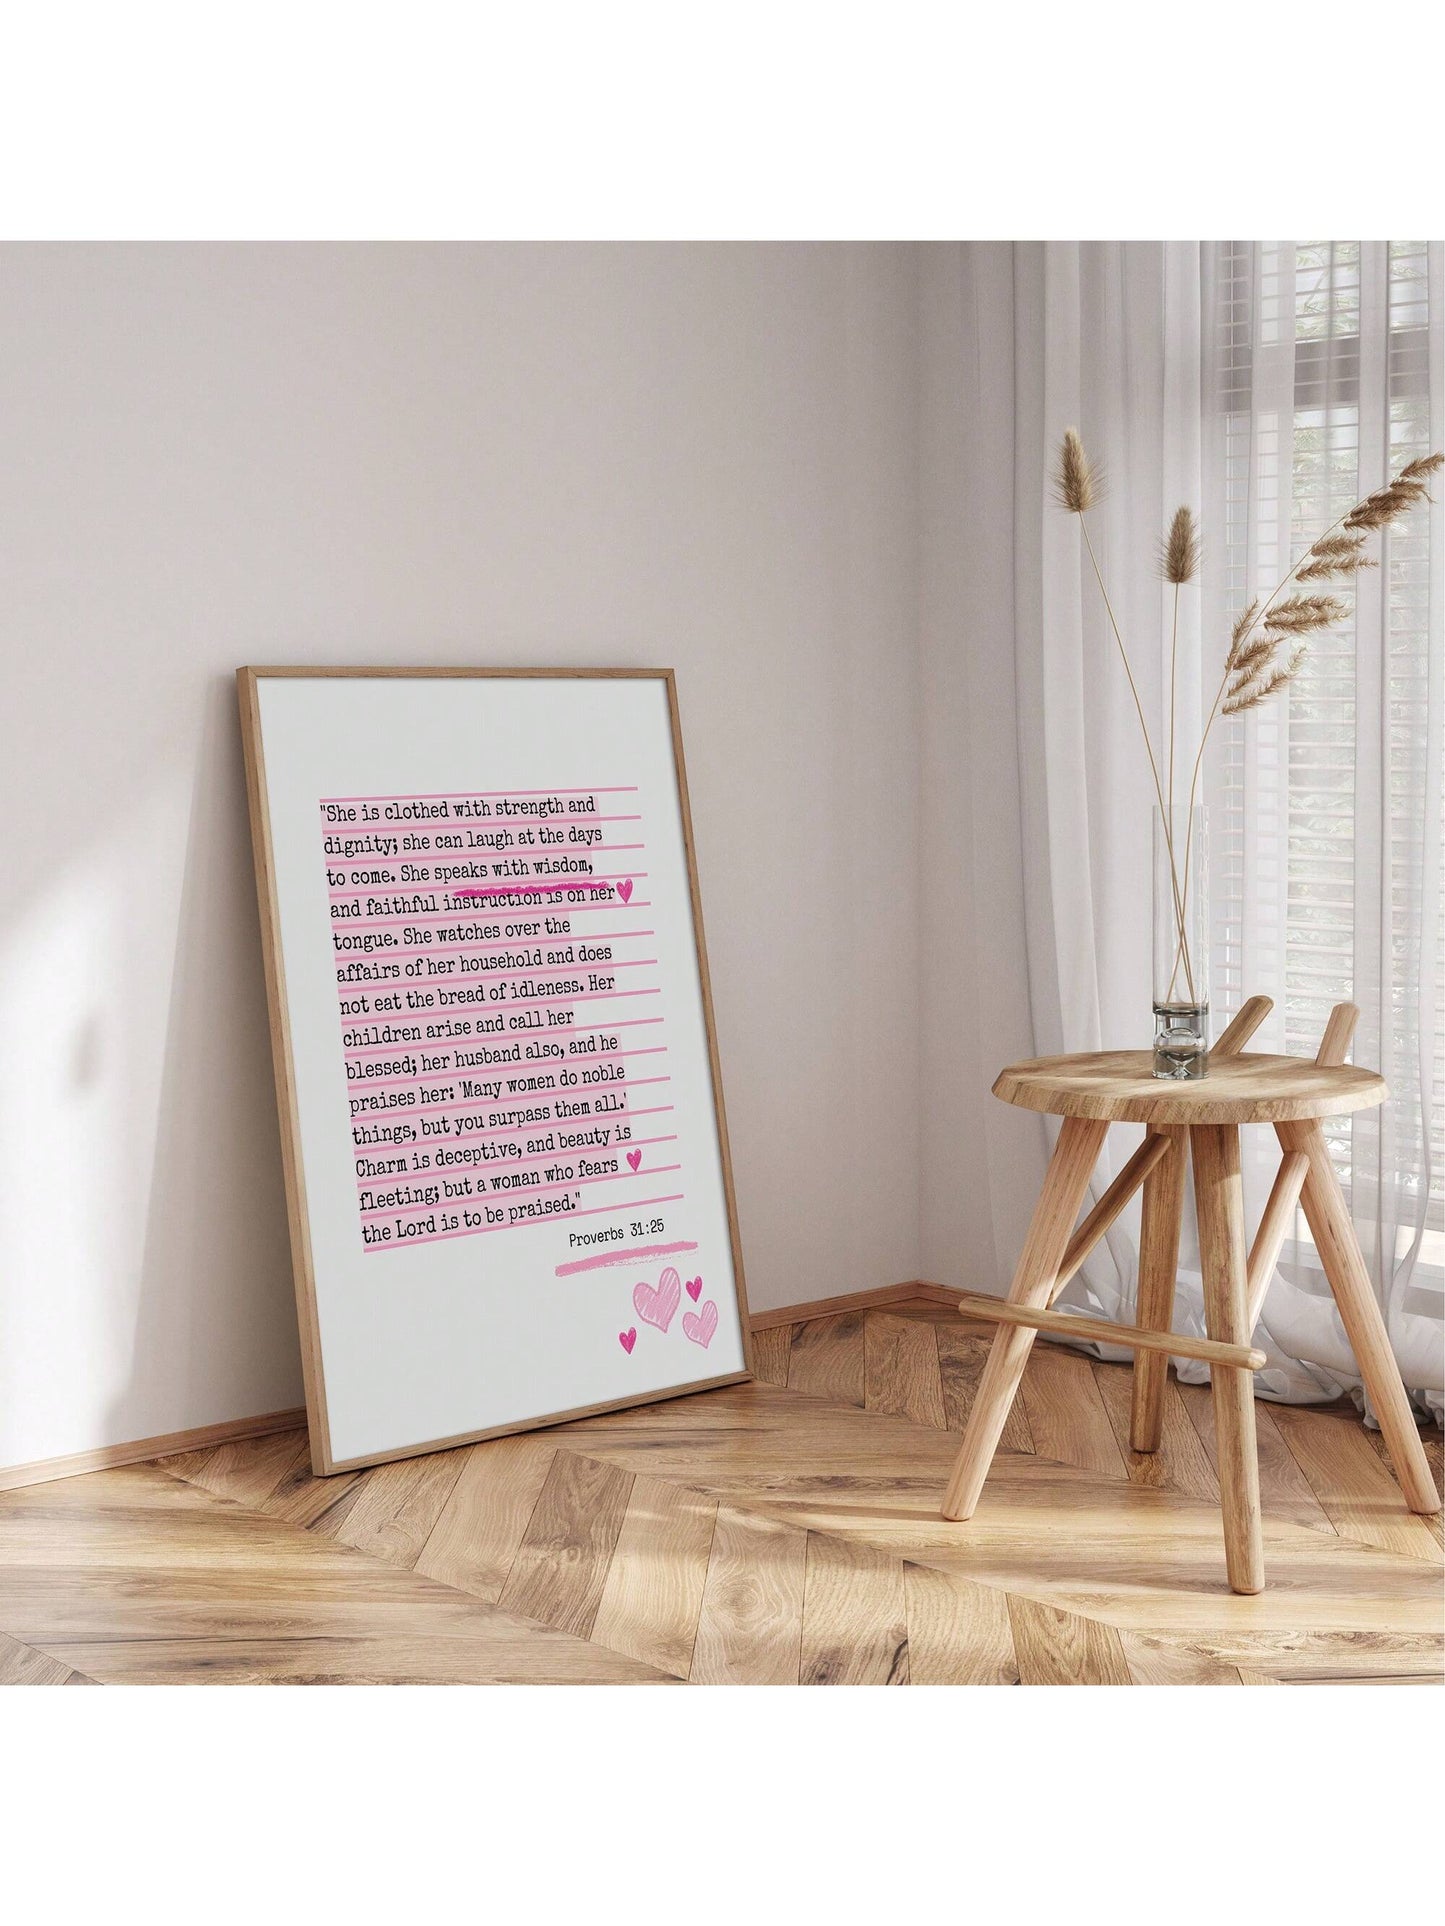 "She is clothed with strength and
dignity; she can laugh at the days
to come. She speaks with wisdom,
and faithful instruction is on her
tongue. She watches over the
affairs of her household and does
not eat the bread of idleness. Her
children arise and call her
blessed; her husband also, and he
praises her: 'Many women do noble
things, but you surpass them all.'
Charm is deceptive, and beauty is
fleeting; but a woman who fears
the Lord is to be praised."
Proverbs 31:25